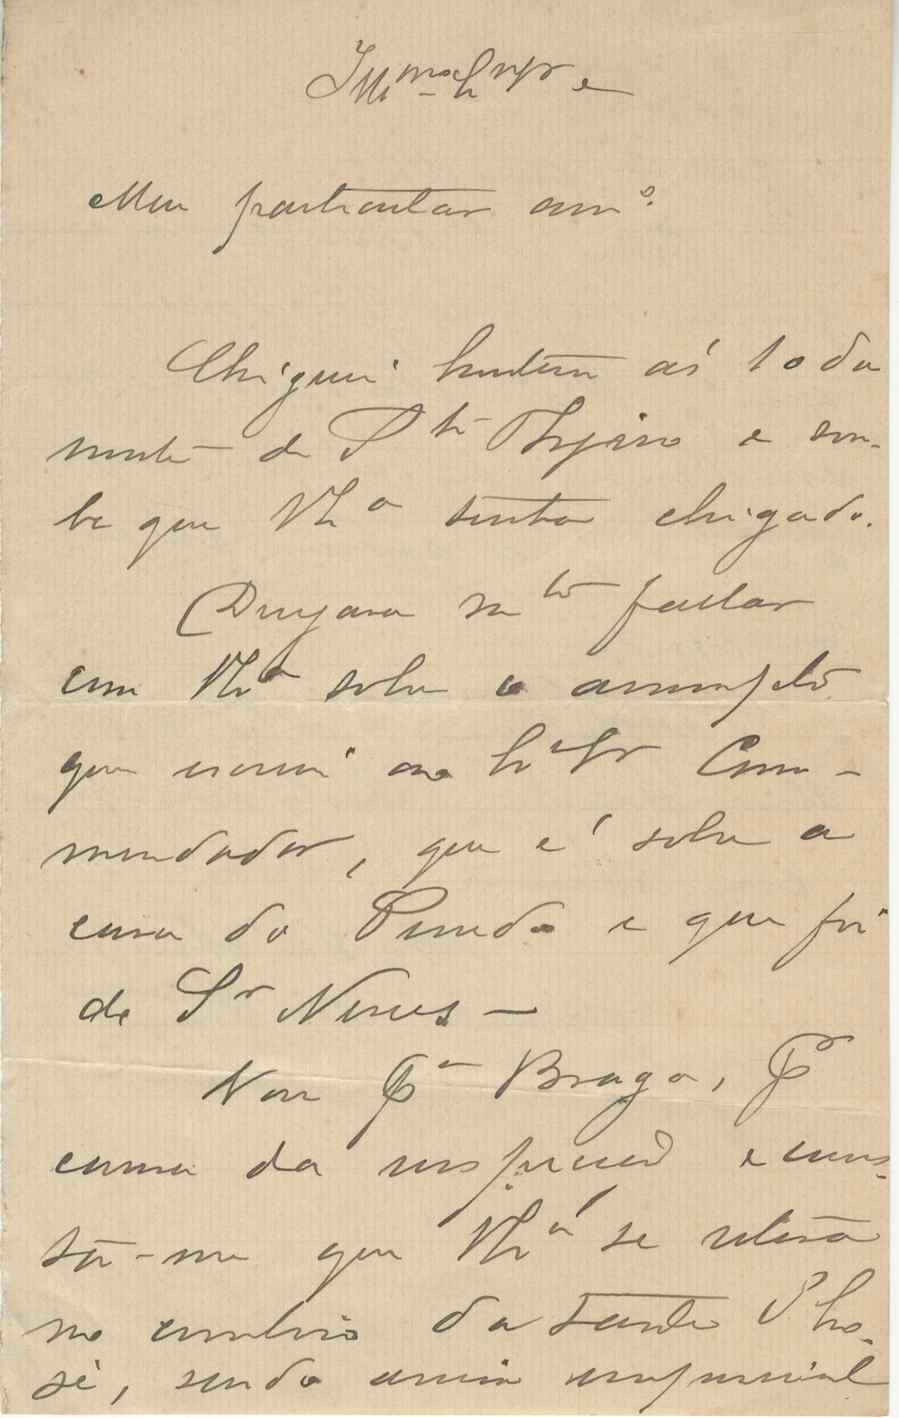 Illmo Exmo Snr e
Meu particular amo.
Cheguei hontem ás 10 da
noute de Sto Thyrso e sou-
be que VExa tinha chegado.
Desejava mto fallar
com VExa sobre o assumpto
que escrevi ao Exmo Snr Com-
mendador, que é sobre a
casa do Penedo e que foi
do Sr Neves —
Vou pa Braga, pr
causa da e cons-
ta-me que VExa se retira
no comboio da tarde
sendo assim impossivel